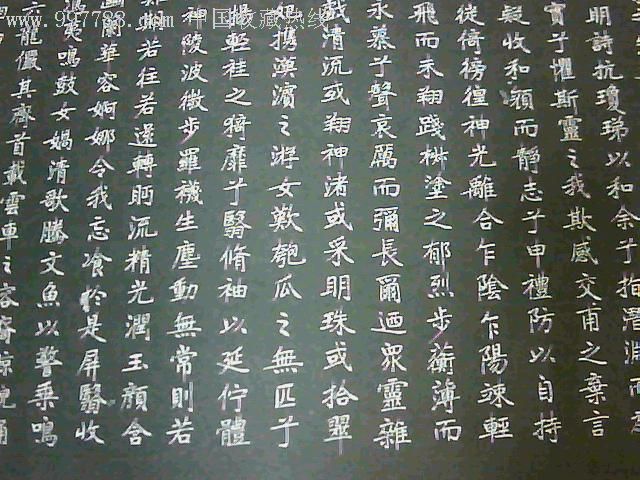 明詩抗瓊珶以和余兮指潛淵而為
實兮懼斯靈之我欺感交甫之棄言
疑收和顏而靜志兮申禮防以自持
徙倚徬徨神光離合乍陰乍陽竦輕
飛而未翔踐椒塗之郁烈步蘅薄而
永慕兮聲哀厲而彌長爾迺眾靈雜
戲清流或翔神渚或采明珠或拾翠
攜漢濱之游女歎匏瓜之無匹兮
揚輕袿之猗靡兮翳脩袖以延佇體
神陵波微步羅襪生塵動無常則若
難若往若還轉眄流精光潤玉顏含
幽蘭華容婀娜令我忘飡於是屏翳收
馮夷鳴鼓女媧清歌騰文魚以警乘鳴
六龍儼其齊首載雲車之容裔鯨鯢踊
www.997788.com 中国收藏热线